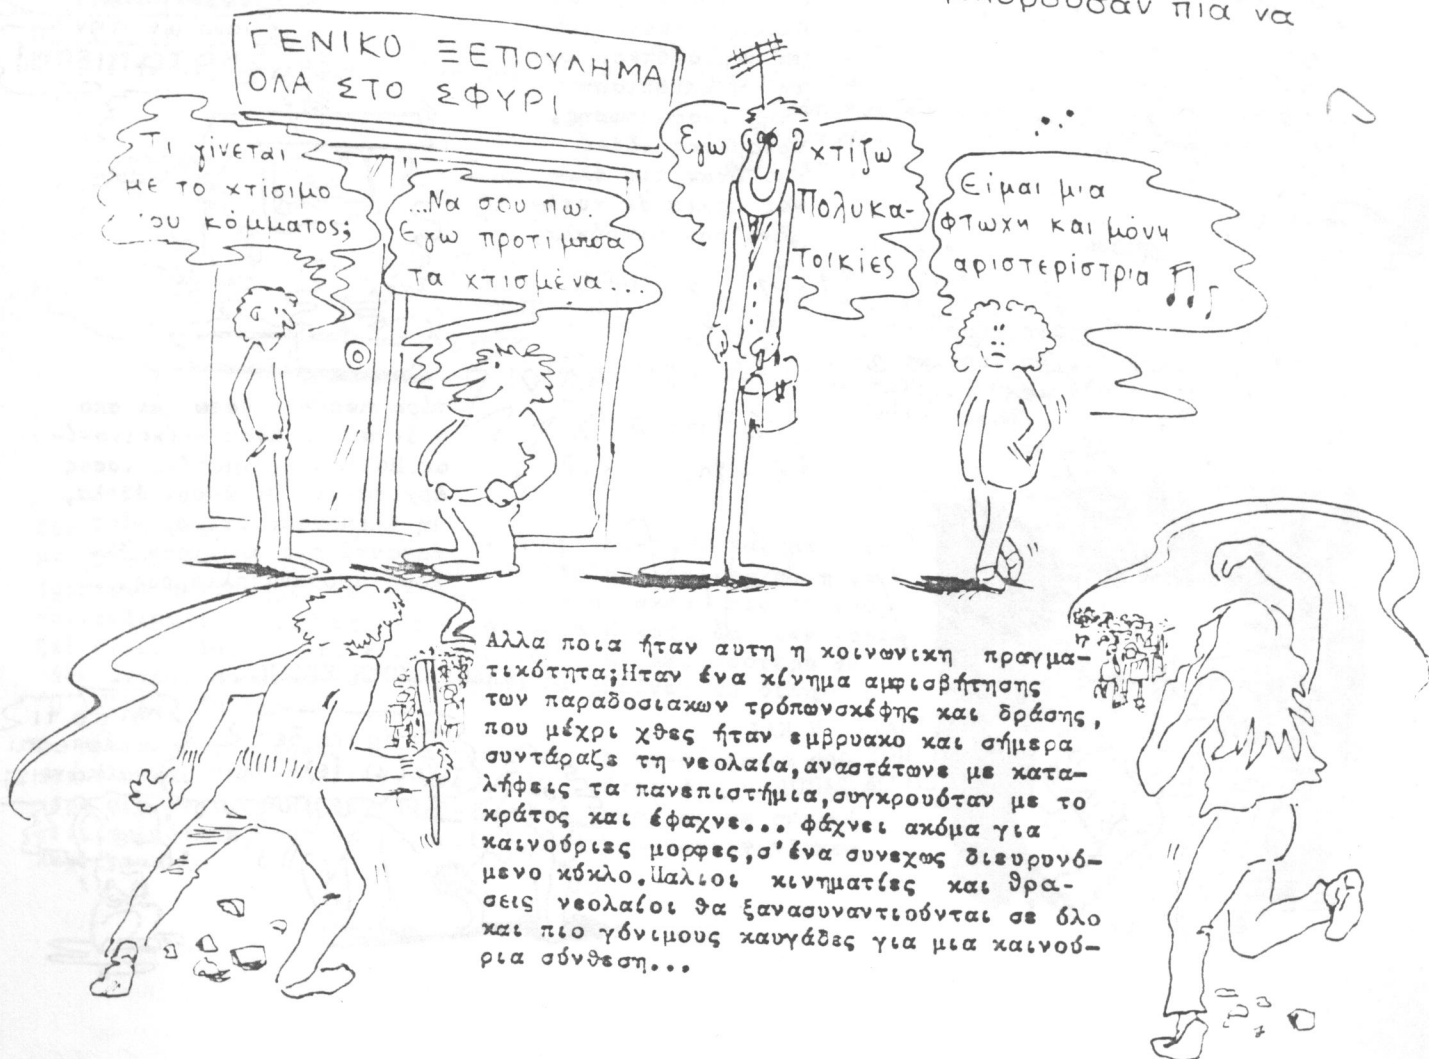 πια να
ΓΕΝΙΚΟ ΞΕΠΟΥΛΗΜΑ
ΟΛΑ ΣΤΟ ΣΦΥΡΙ
Τι γίνεται
με το χτίσιμο
του κόμματος;
...Να σου πω.
Εγω προτιμησα
τα χτισμένα...
Εγω χτίζω
Πολυκα-
τοικίες
Είμαι μια
φτωχη και μόνη
αριστερίστρια
Αλλα ποια ήταν αυτη η κοινωνικη πραγμα-
τικότητα;Ηταν ένα κίνημα αμφισβήτησης
των παραδοσιακων τρόπωνσκέψης και δράσης,
που μέχρι χθες ήταν εμβρυακο και σήμερα
συντάραζε τη νεολαία,αναστάτωνε με κατα-
λήψεις τα πανεπιστήμια,συγκρουόταν με το
κράτος και έψαχνε... ψάχνει ακόμα για
καινούριες μορφες,σ'ένα συνεχως διευρυνό-
μενο κύκλο.Παλιοι κινηματίες και θρα-
σεις νεολαίοι θα ξανασυναντιούνται σε όλο
και πιο γόνιμους καυγάδες για μια καινού-
ρια σύνθεση...